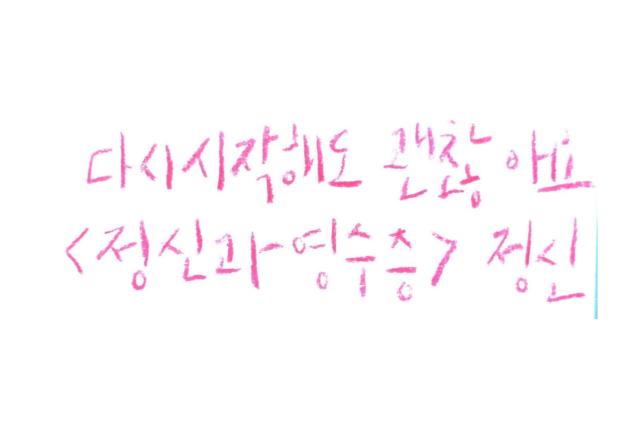 다시시작해도 괜찮아요
<정신과영수증> 정신